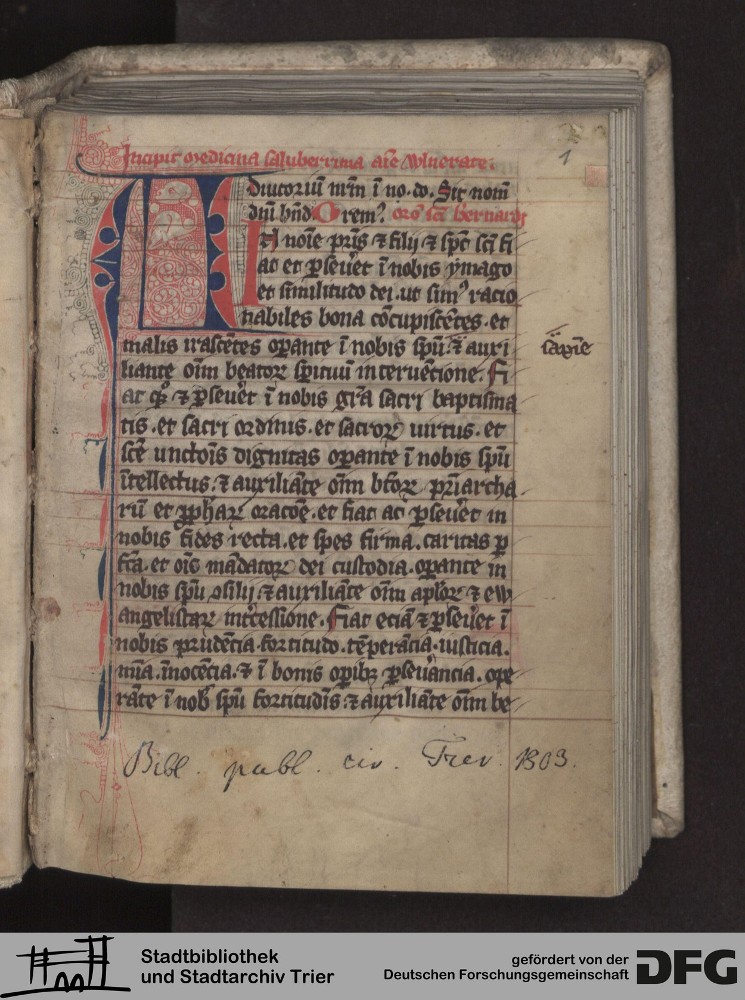 Incipit medicina saluberrima aīe wlnerate:
1
Adiutoriū nr̄m ī no. do. Sit nom̄
dn̄i bn̄d Orem9 oro sc̄i bernardi
In noīe pr̄is ⁊ filij ⁊ sp̄c sc̄i fi
at et ꝑseũet ī nobis ymago
et similitudo dei. ut sim9 racio
nabiles bona cōcupiscētes. et
malis irascētes oꝑante ī nobis spū. ⁊ auxi
liante oīm beatoꝝ spirituū interuētione. Fi
at qs̄ ⁊ ꝑseũet ī nobis gr̄a sacri baptisma
tis. et sacri ordinis. et sacroꝝ uirtus. et
scē unctoīs dignitas oꝑante ī nobis spū
ītellectus. ⁊ auxiliāte oīm btoꝝ pr̄iarcha
rū et ꝓphaꝝ oracōe. et fiat ac ꝑseũet in
nobis fides recta. et spes firma. caritas ꝑ
fc̄a. et oīs mādatoꝝ dei custodia. oꝑante in
nobis spū ꝯsilij ⁊ auxiliāte oīm apl̄oꝝ ⁊ ew
angelistaꝝ īnt̄cessione. Fiat eciā ⁊ ꝑseũet ī
nobis prudēcia. fortitudo. tēperācia. iusticia.
mīa. īnocēcia. ⁊ ī bonis oꝑibꝫ ꝑseũancia. oꝑe
rāte ī nob̄ spū fortitudīs. ⁊ auxiliāte oīm be
Bibl. publ. civ. Trev. 1803.
Stadtbibliothek
und Stadtarchiv Trier
gefördert von der
Deutschen Forschungsgemeinschaft
DFG